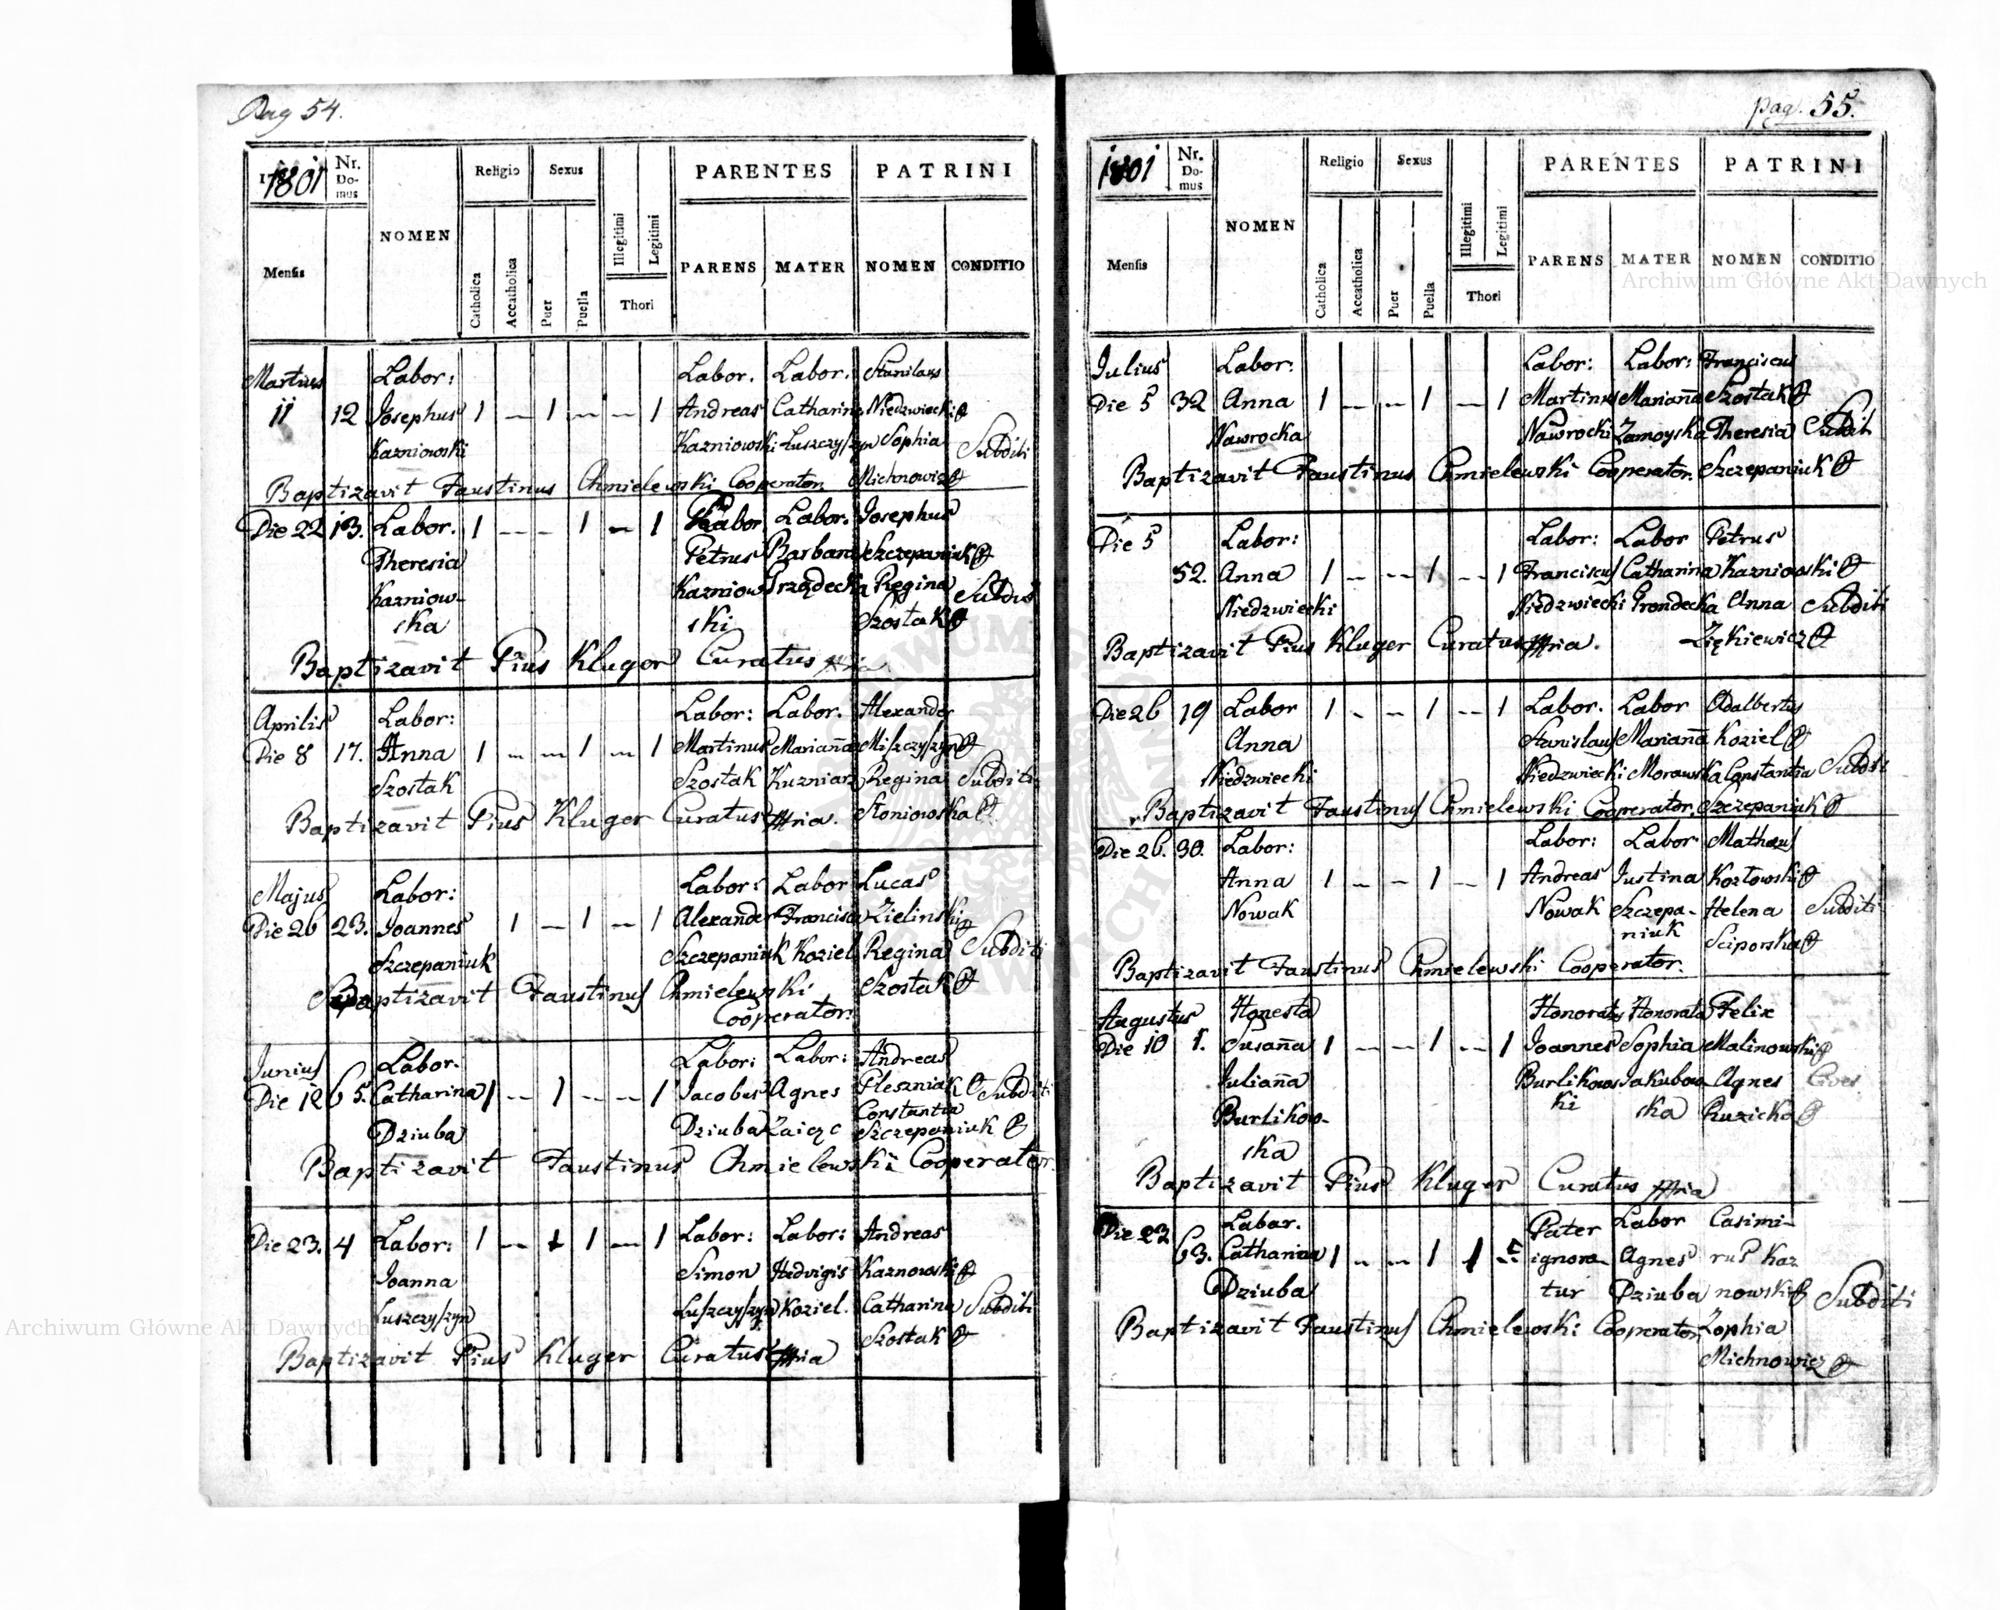 Pag 54.
1801 Nr. Domus NOMEN Religio Sexus Illegitimi Legitimi PARENTES PATRINI
Mensis Catholica Accatholica Puer Puella Thori PARENS MATER NOMEN CONDITIO
Martius Labor: Labor. Labor. Stanilaus
11 12 Josephus 1 — 1 — — 1 Andreas Catharina Niedzwiecki
Kazniowski Kazniowski Łuszczyszyn Sophia Subditi
Baptizavit Faustinus Chmielewski Cooperator. Michnowicz
Die 22 13. Labor. 1 — — 1 — 1 Labor Labor. Josephus
Theresia Petrus Barbara Szczepaniuk
Kazniow- Kazniow Prządecka Regina Subditi
ska ski Szostak
Baptizavit Pius Kluger Curatus mpria
Aprilis Labor: Labor: Labor. Alexander
Die 8 17. Anna 1 — — 1 — 1 Martinus Mariaña Miszczyszyn
Szostak Szostak Kuzniarz Regina Subditi
Baptizavit Pius Kluger Curatus mpria. Słoniowska
Majus Labor: Labor: Labor Lucas
Die 26 23. Joannes 1 — 1 — 1 Alexander Francisca Zielinski
Szczepaniuk Szczepaniuk Koziel Regina Subditi
Baptizavit Faustinus Chmielewski Szostak
Cooperator.
Junius Labor. Labor: Labor: Andreas
Die 12 65. Catharina 1 — 1 — — 1 Jacobus Agnes Pleszniak Subditi
Constantia
Dziuba Dziuba Zaiąc Szczepaniuk
Baptizavit Faustinus Chmielewski Cooperator.
Die 23. 4 Labor: 1 — 1 1 — 1 Labor: Labor: Andreas
Joanna Simon Hedvigis Kaznowski
Łuszczyszyn Łuszczyszyn Koziel. Catharina Subditi
Baptizavit Pius Kluger Curatus mpria Szostak
pag. 55.
1801 Nr. Domus NOMEN Religio Sexus Illegitimi Legitimi PARENTES PATRINI
Mensis Catholica Accatholica Puer Puella Thori PARENS MATER NOMEN CONDITIO
Julius Labor: Labor: Labor: Franciscus
Die 5 32 Anna 1 — — 1 — 1 Martinus Mariaña Szostak
Nawrocka Nawrocki Zamoyska Theresia Subdit
Baptizavit Faustinus Chmielewski Cooperator. Szczepaniuk
Die 5 Labor: Labor: Labor Petrus
52. Anna 1 — — 1 — 1 Franciscus Catharina Kazniowski
Niedzwiecki Niedzwiecki Grondecka Anna Subditi
Baptizavit Pius Kluger Curatus mpria. Ziękiewicz
Die 26 19 Labor 1 — — 1 — 1 Labor. Labor Adalbertus
Anna Stanislaus Mariaña Koziel
Niedzwiecki Niedzwiecki Morawska Constantia Subditi
Baptizavit Faustinus Chmielewski Cooperator. Szczepaniuk
Die 26. 30. Labor: Labor: Labor Matheus
Anna 1 — — 1 — 1 Andreas Justina Kozłowski
Nowak Nowak Szczepa- Helena Subditi
niuk Sciporska
Baptizavit Faustinus Chmielewski Cooperator.
Augustus Honesta Honoratus Honorata Felix
Die 10 1. Susaña 1 — — 1 — 1 Joannes Sophia Malinowski
Juliaña Burlikows Jakubow Agnes Cives
Burlikow- ki ska Ruzicka
ska
Baptizavit Pius Kluger Curatus mpria
Die 23 Labar. Pater Labor Casimi-
63. Catharina 1 — — 1 1 — ignora- Agnes rus Kaz
Dziuba tur Dziuba nowski Subditi
Baptizavit Faustinus Chmielewski Cooperator. Zophia
Michnowicz
Archiwum Główne Akt Dawnych
Archiwum Główne Akt Dawnych